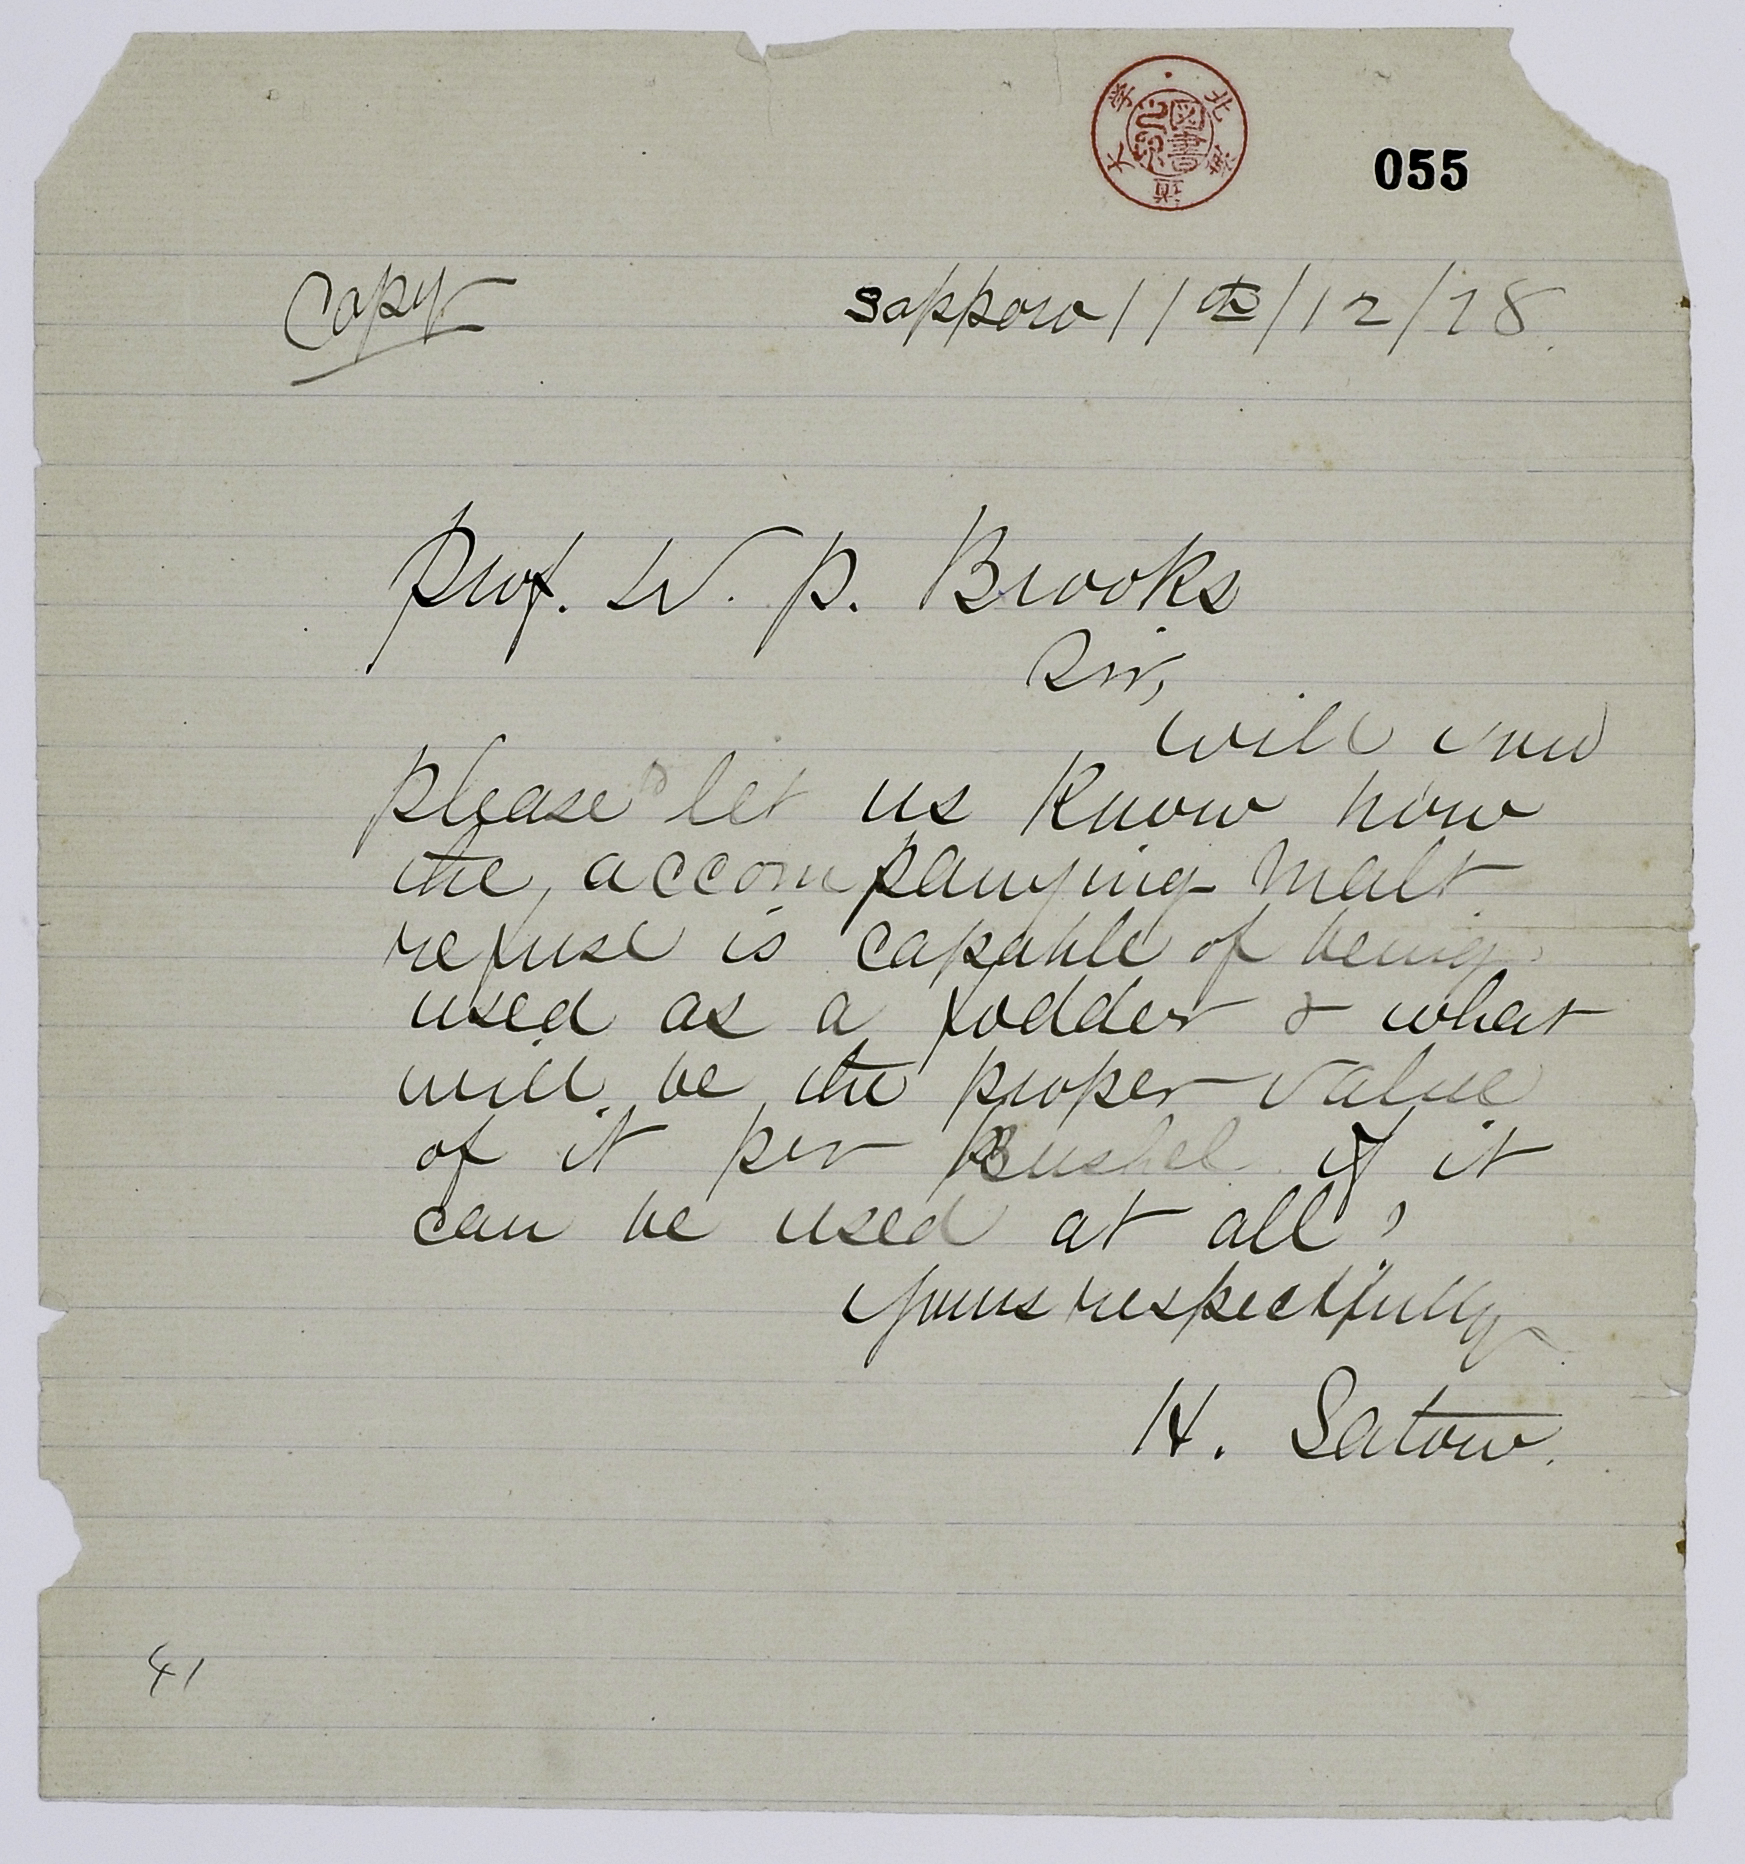 北海道大学
図書之印
055
Copy
Sapporo 11th/12/78.
Prof. W. P. Brooks
Sir,
will you
please let us know how
the accompanying malt
refuse is capable of being
used as a fodder & what
will be the proper value
of it per Bushel if it
can be used at all?
Yours respectfully
H. Satow.
41